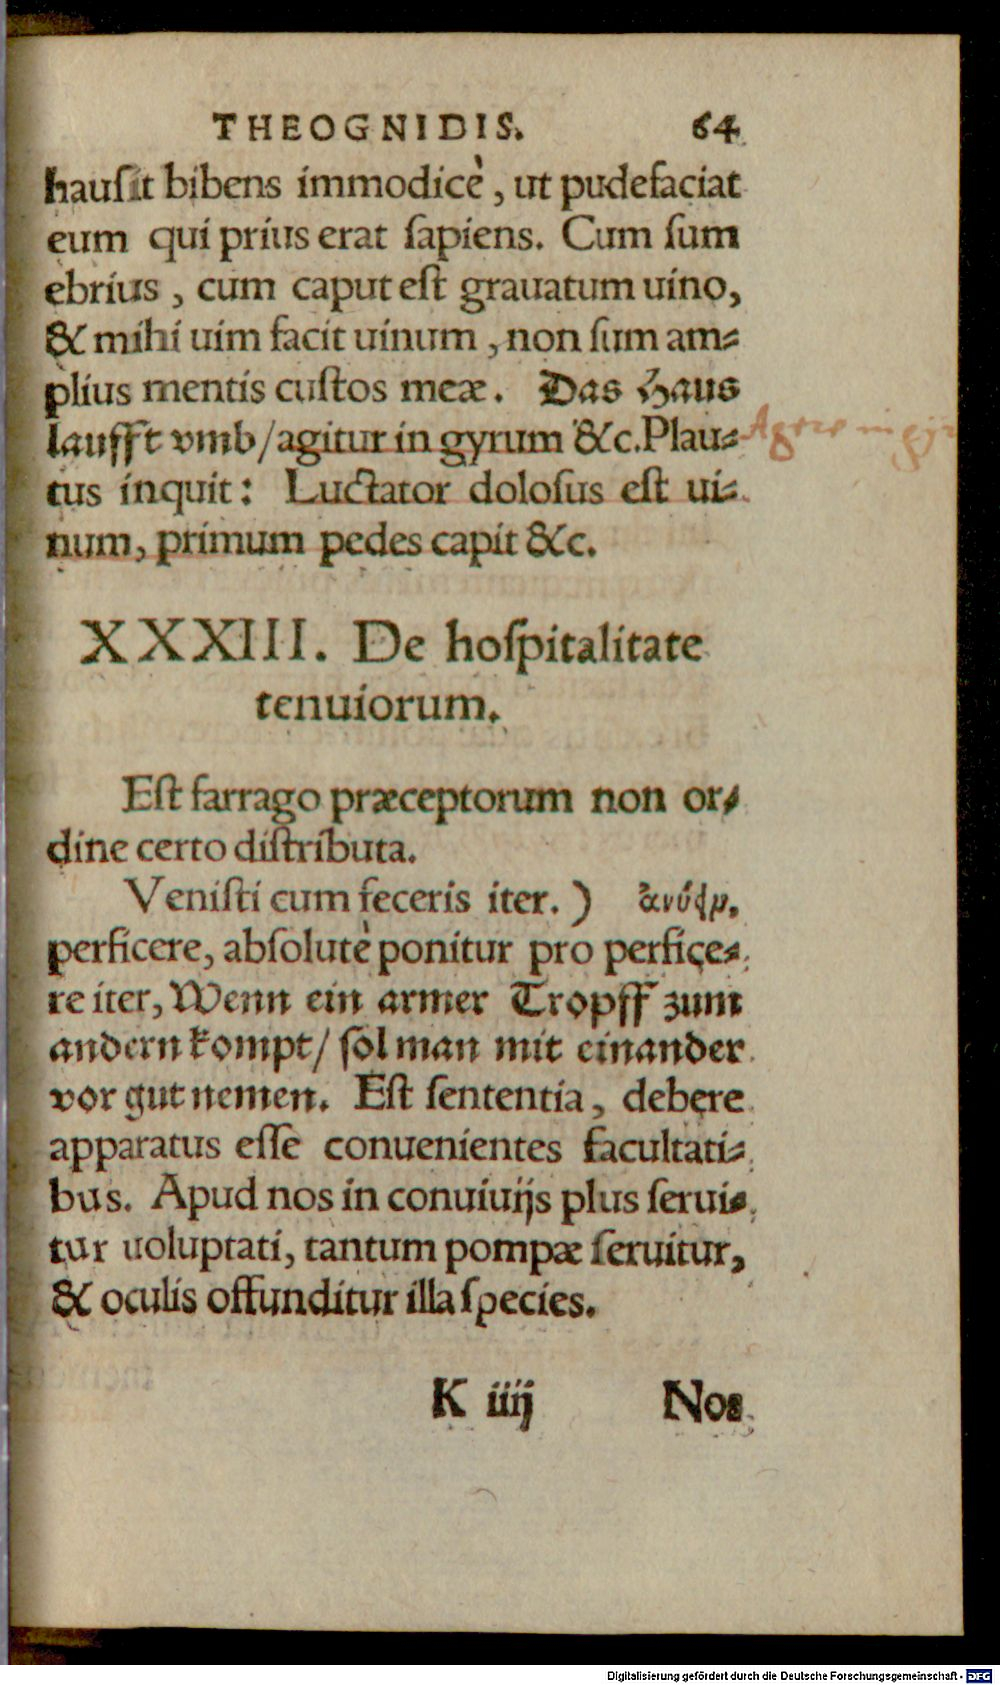 THEOGNIDIS. 64
hauſit bibens immodicè, ut pudefaciat
eum qui prius erat ſapiens. Cum ſum
ebrius, cum caput eſt grauatum uino,
& mihi uim facit uinum, non ſum am⸗
plius mentis cuſtos meæ. Das Haus
laufft vmb/ agitur in gyrum &c. Plau⸗
Agere in
tus inquit: Luctator doloſus eſt ui⸗
num, primum pedes capit &c.
XXXIII. De hoſpitalitate
tenuiorum.
Eſt farrago præceptorum non or⸗
dine certo diſtributa.
Veniſti cum feceris iter.)
perficere, abſolutè ponitur pro perfice⸗
re iter, Wenn ein armer Tropff zum
andern kompt/ ſol man mit einander
vor gut nemen. Eſt ſententia, debere
apparatus eſſe conuenientes facultati⸗
bus. Apud nos in conuiuijs plus ſerui⸗
tur uoluptati, tantum pompæ ſeruitur,
& oculis offunditur illa ſpecies.
K iiij Nos
Digitalisierung gefördert durch die Deutsche Forschungsgemeinschaft - DFG